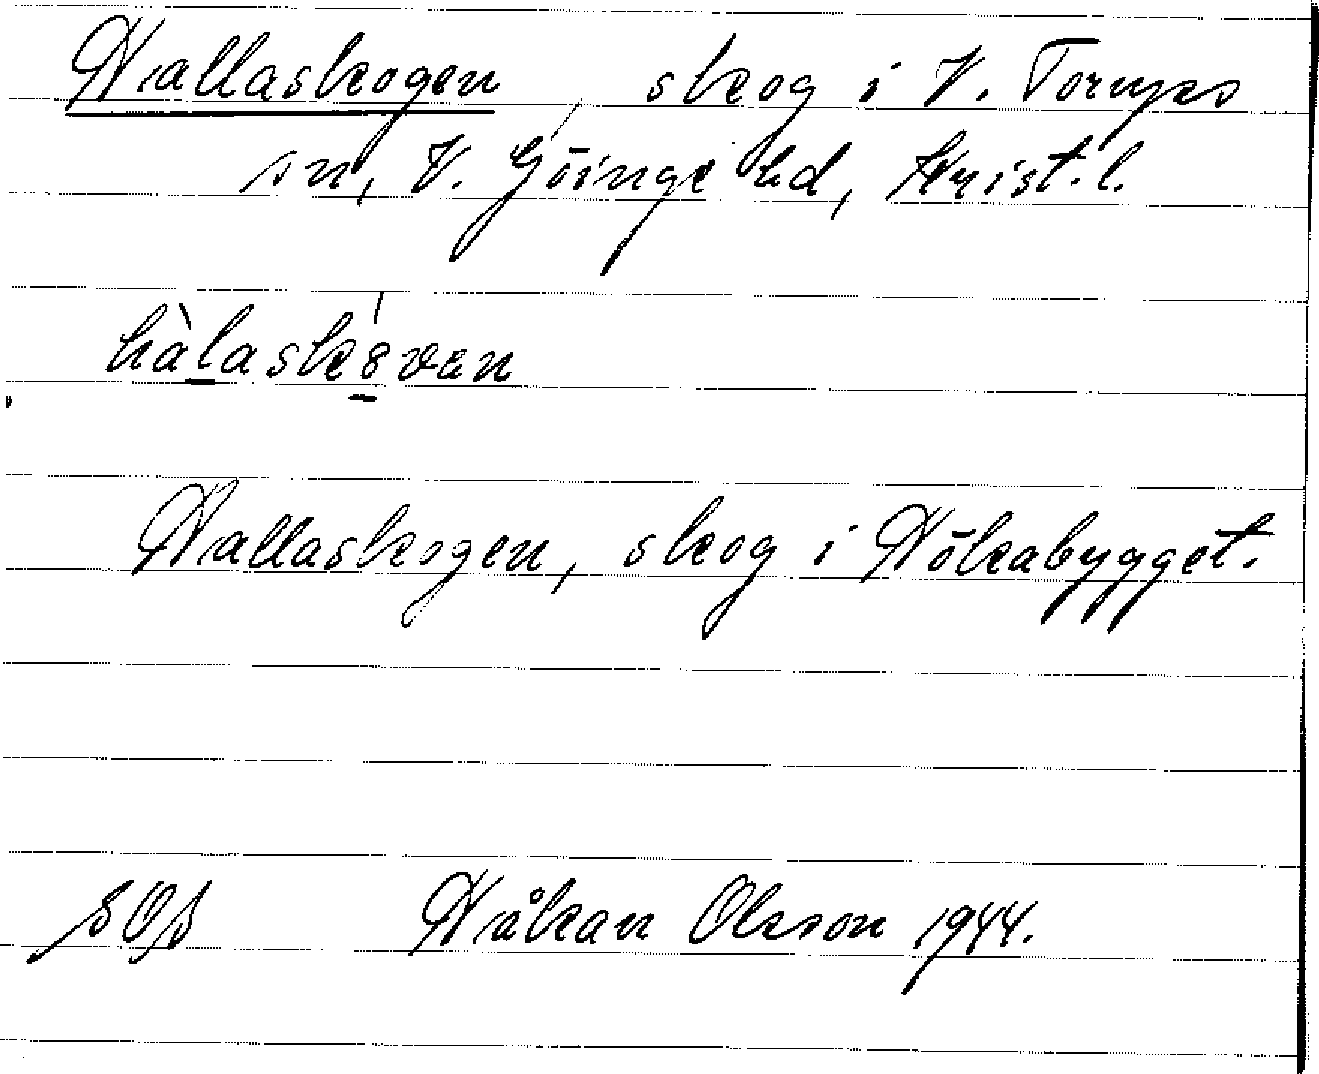 Hallaskogen, skog i V. Torups
sn, V. Göinge hd, Krist. l.
hàlaskóvan
Hallaskogen, skog i Hökabygget.
Håkan Olsson 1944.